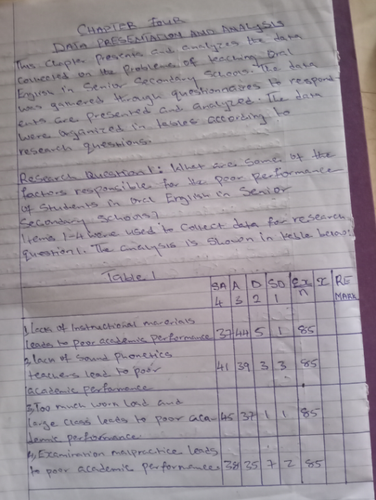 CHAPTER FOUR
DATA PRESENTATION AND ANALYSIS
This Chapter Presents and analyzes the data
collected on the Problems of teaching Oral
English in Senior Secondary Schools. The data
was gathered through questionnaires to respond-
ents are presented and analyzed. The data
were organized in tables according to
research questions.
Research Question 1: What are some of the
factors responsible for the poor performance
of Students in Oral English in Senior
Secondary Schools?
Items 1-4 were used to collect data for research
question 1. The analysis is shown in table below
Table 1
SA A D SD Ex x RE
4 3 2 1 n MARK
1. Lack of Instructional materials
leads to poor academic performance 37 44 5 1 85
2. lack of Sound phonetics
teachers lead to poor 41 39 3 3 85
academic performance
3. Too much work load and
large class leads to poor aca- 45 37 1 1 85
demic performance
4. Examination malpractice leads
to poor academic performance 38 35 7 2 85